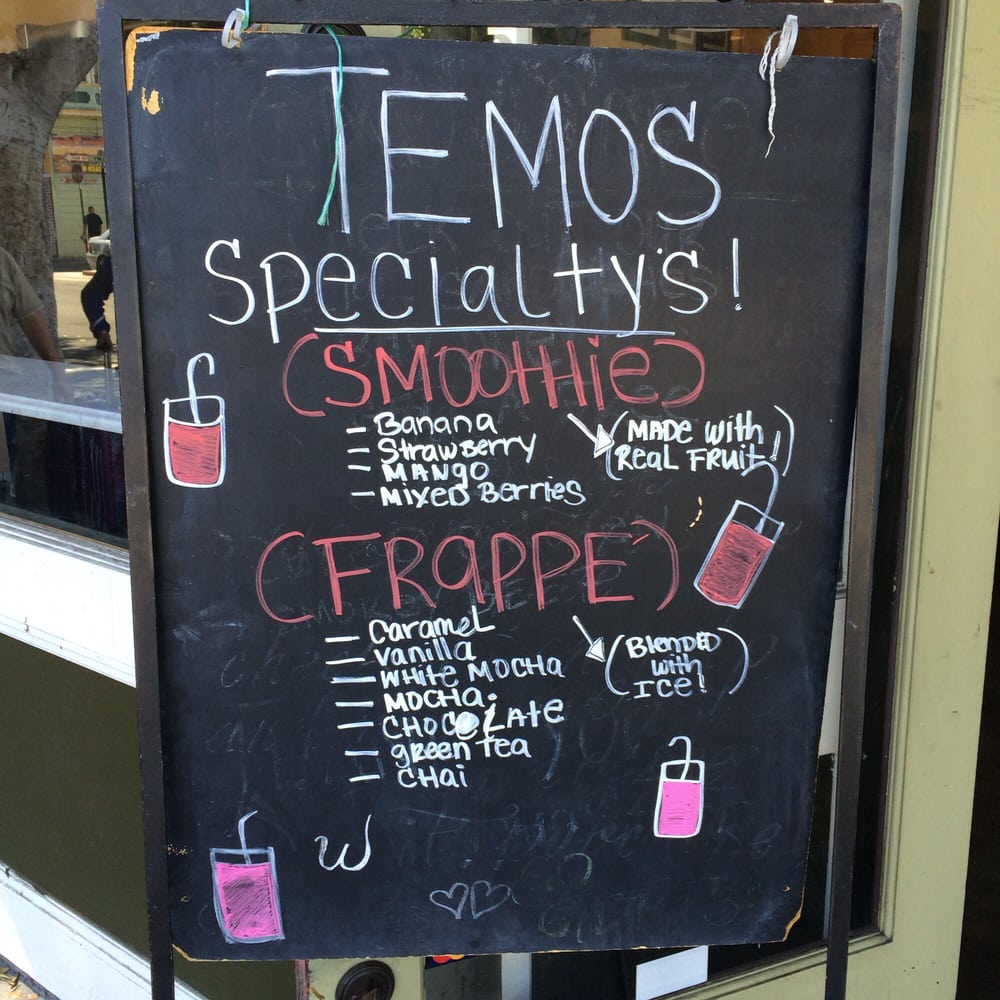 TEMOS
Specialty's!
(SMOOtHie)
- Banana
- StrawBerry
- MANgo
- MIXED Berries
(MADE with
Real FRUit!)
(FRaPPE)
- Caramel
- vanilla
- WHite MOCHa
- MOCHa
- CHOCOLAte
- green tea
- CHai
(BlenDED
with
Ice!)
W